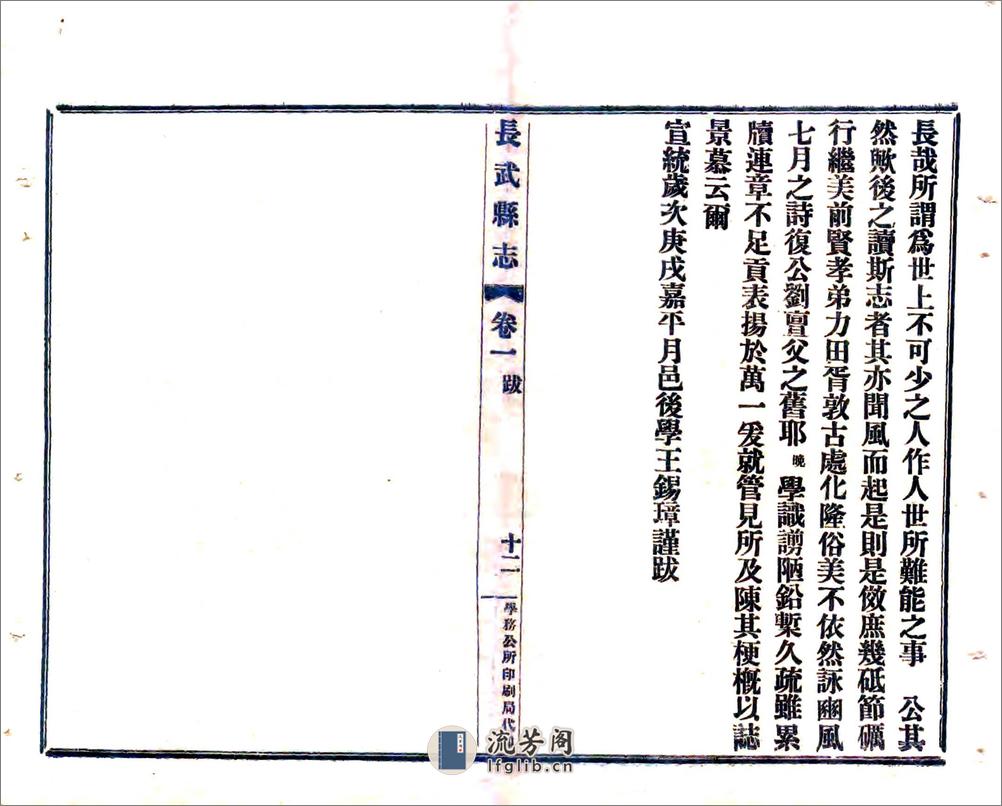 長哉所謂爲世上不可少之人作人世所難能之事　公其
然歟後之讀斯志者其亦聞風而起是則是傚庶幾砥節礪
行繼美前賢孝弟力田胥敦古處化隆俗美不依然詠豳風
七月之詩復公劉亶父之舊耶晚學識謭陋鉛槧久疏雖累
牘連章不足貢表揚於萬一爰就管見所及陳其梗概以誌
景慕云爾
宣統歲次庚戌嘉平月邑後學王錫璋謹跋
長武縣志　卷一　跋　十二　學務公所印刷局代
流芳阁
lfglib.cn